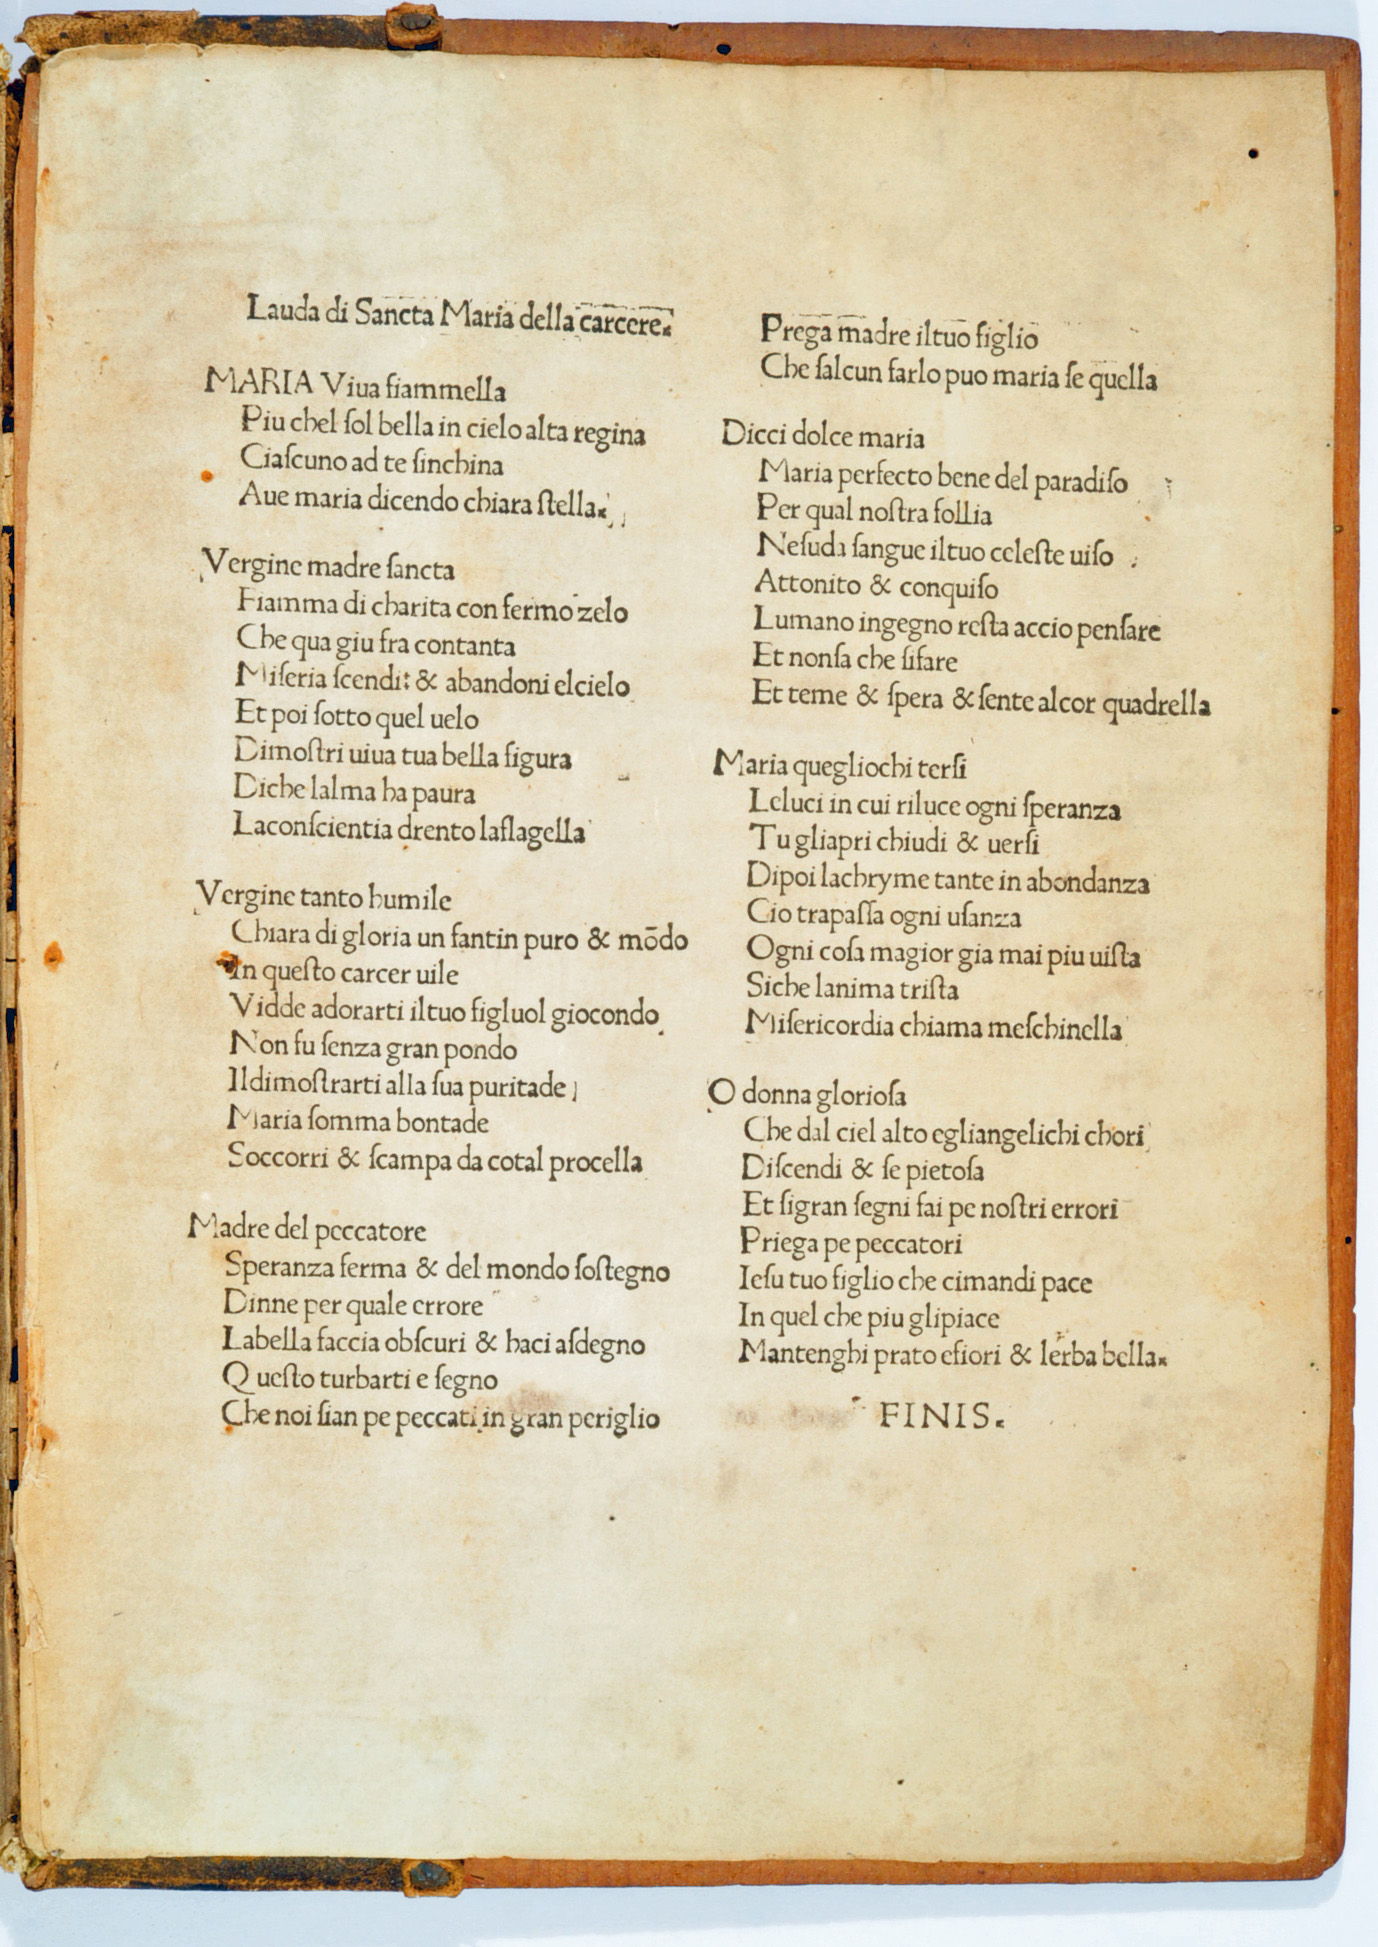 Lauda di Sancta Maria della carcere.
MARIA Viua fiammella
Piu chel ſol bella in cielo alta regina
Ciaſcuno ad te ſinchina
Aue maria dicendo chiara ſtella.
Vergine madre ſancta
Fiamma di charita con fermo zelo
Che qua giu fra contanta
Miſeria ſcendi: & abandoni elcielo
Et poi ſotto quel uelo
Dimoſtri uiua tua bella figura
Diche lalma ha paura
Laconſcientia drento laflagella
Vergine tanto humile
Chiara di gloria un fantin puro & mōdo
In queſto carcer uile
Vidde adorarti iltuo figluol giocondo
Non fu ſenza gran pondo
Ildimoſtrarti alla ſua puritade
Maria ſomma bontade
Soccorri & ſcampa da cotal procella
Madre del peccatore
Speranza ferma & del mondo ſoſtegno
Dinne per quale errore
Labella faccia obſcuri & haci aſdegno
Queſto turbarti e ſegno
Che noi ſian pe peccati in gran periglio
Prega madre iltuo figlio
Che ſalcun farlo puo maria ſe quella
Dicci dolce maria
Maria perfecto bene del paradiſo
Per qual noſtra follia
Neſuda ſangue iltuo celeſte uiſo
Attonito & conquiſo
Lumano ingegno reſta accio penſare
Et nonſa che ſifare
Et teme & ſpera & ſente alcor quadrella
Maria quegliochi terſi
Leluci in cui riluce ogni ſperanza
Tu gliapri chiudi & uerſi
Dipoi lachryme tante in abondanza
Cio trapaſſa ogni uſanza
Ogni coſa magior gia mai piu uiſta
Siche lanima triſta
Miſericordia chiama meſchinella
O donna glorioſa
Che dal ciel alto egliangelichi chori
Diſcendi & ſe pietoſa
Et ſigran ſegni fai pe noſtri errori
Priega pe peccatori
Ieſu tuo figlio che cimandi pace
In quel che piu glipiace
Mantenghi prato efiori & lerba bella.
FINIS.